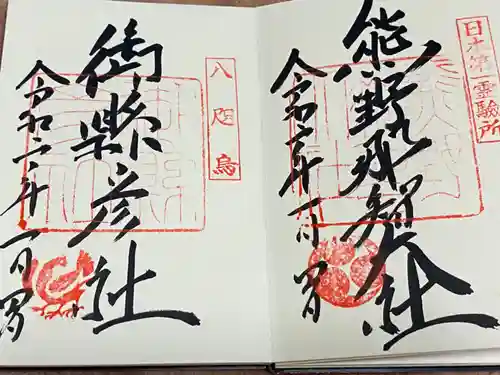 日本第一霊験所
熊野那智大社
令和二年一月四日
八咫烏
御縣彦社
令和二年一月四日